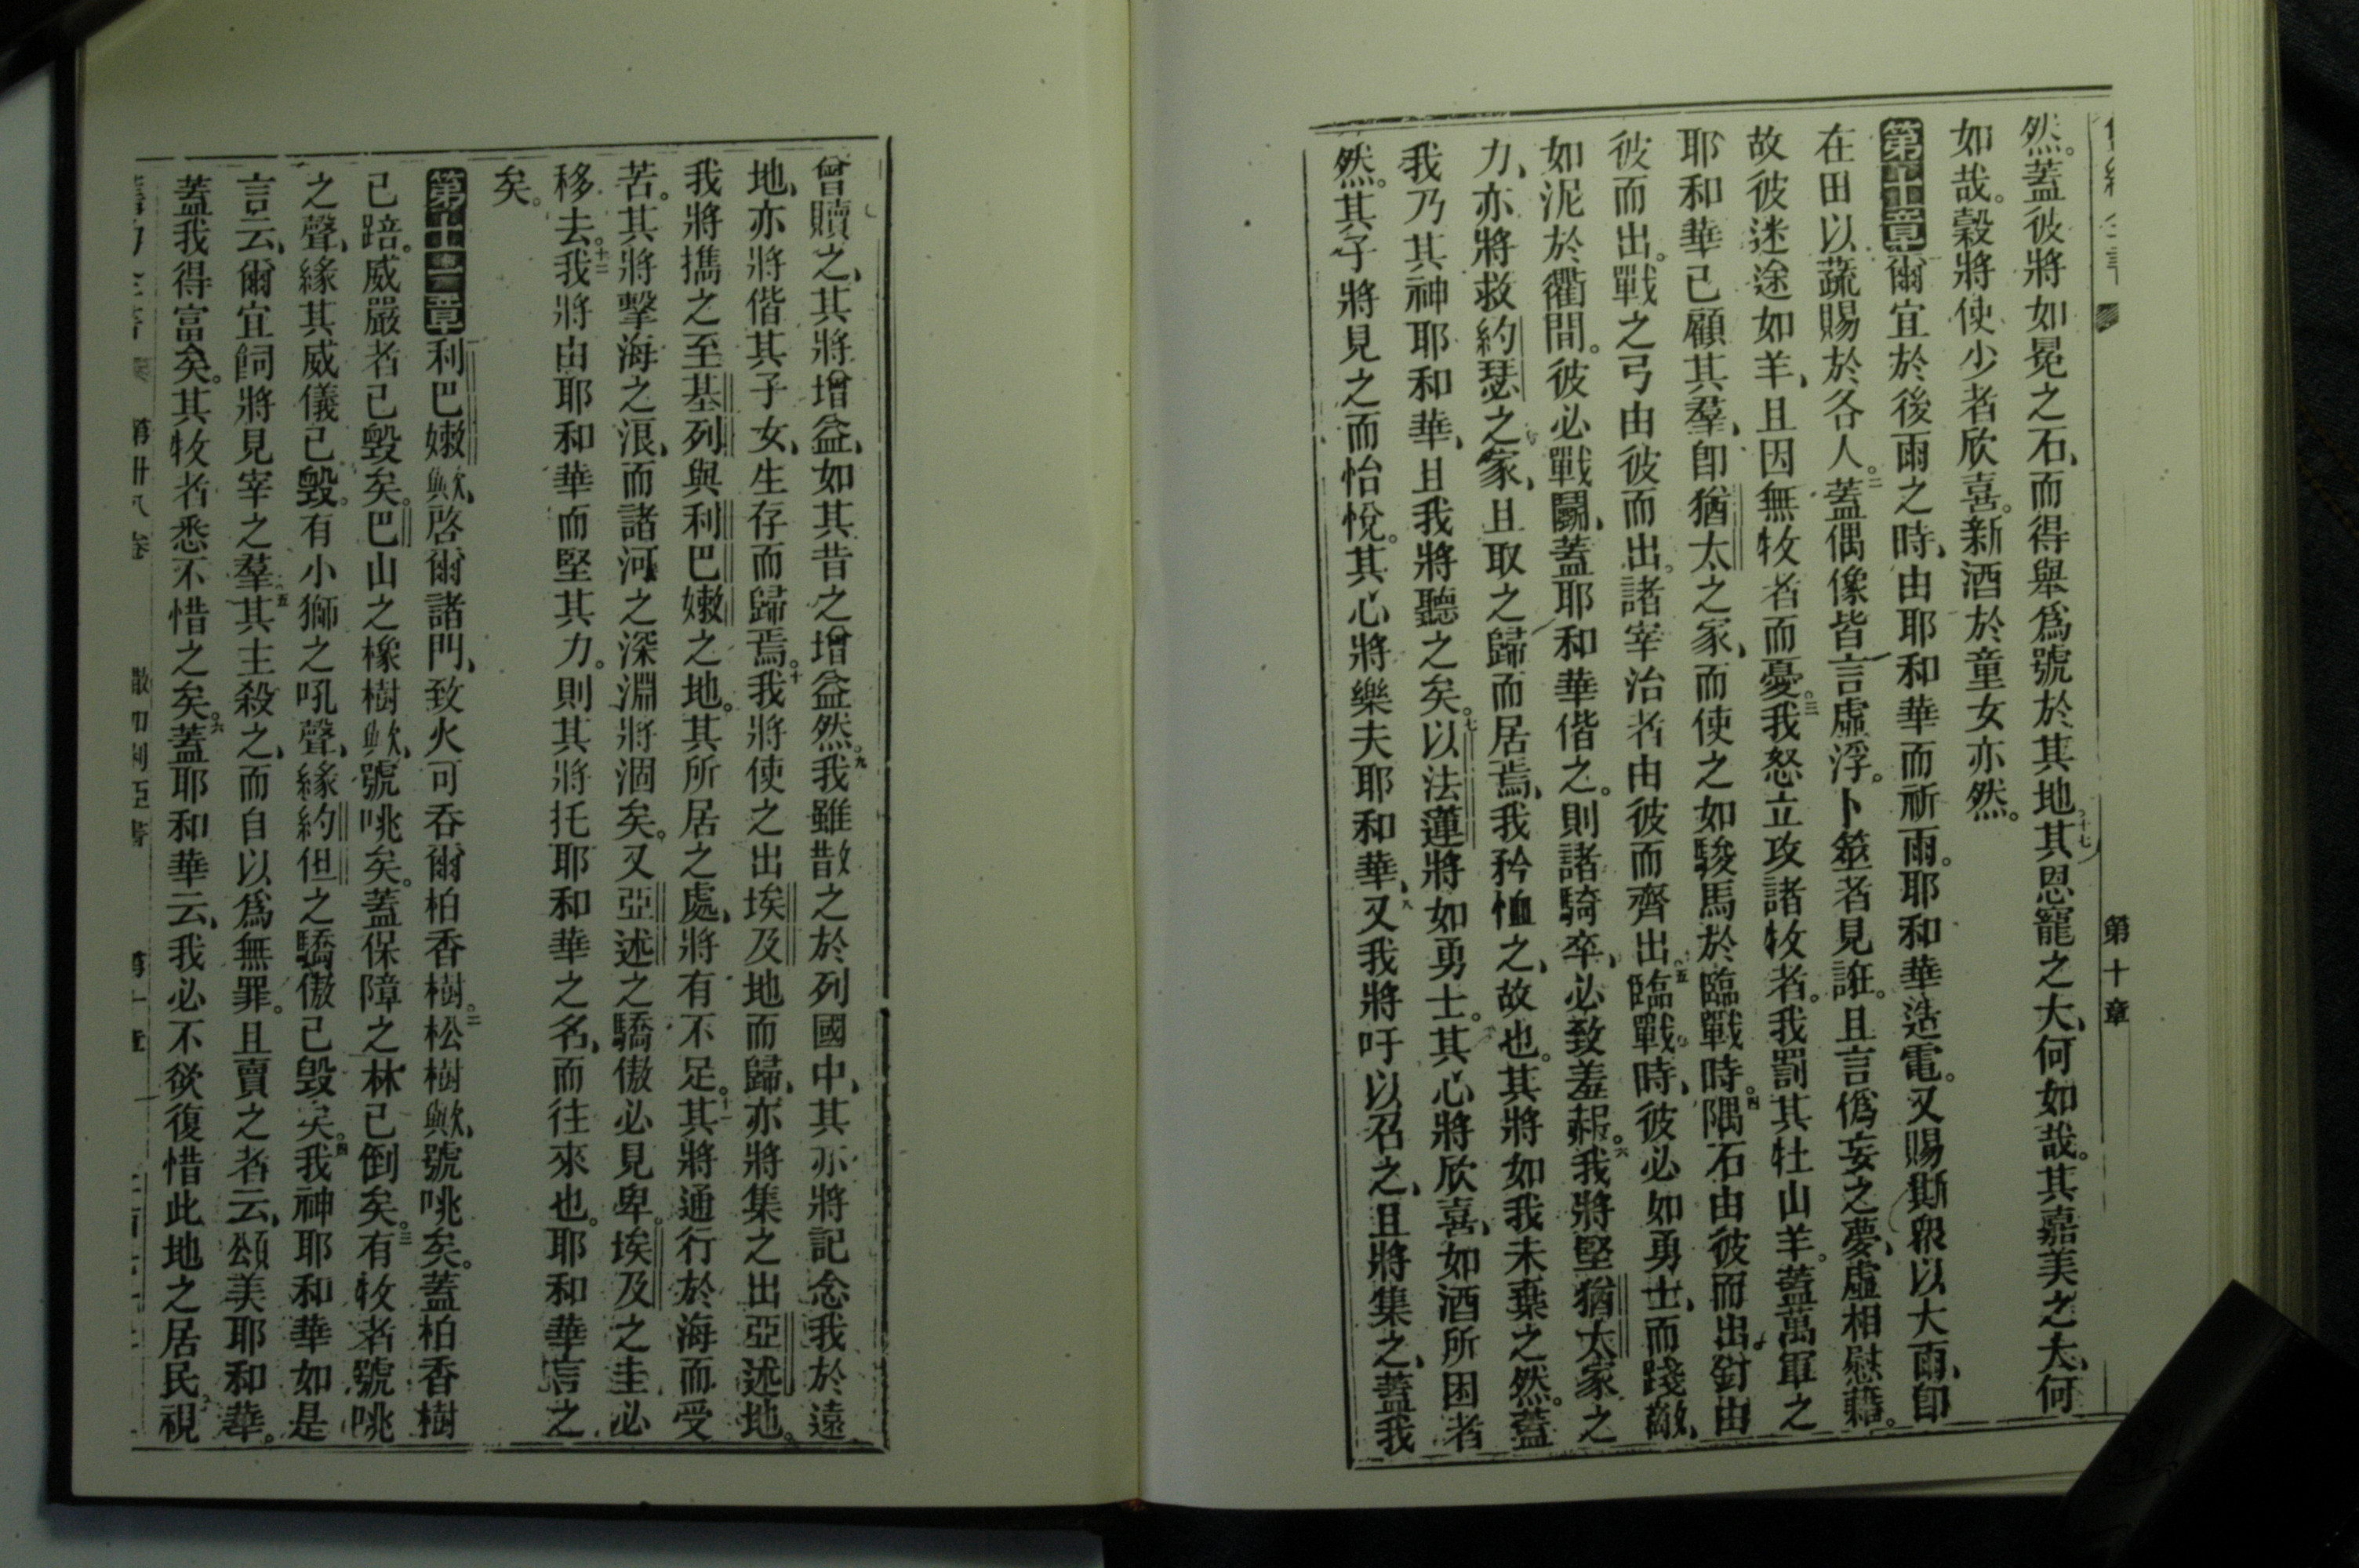 第十章
然。蓋彼將如冕之石、而得舉爲號於其地。十七其恩寵之大、何如哉。其嘉美之大、何
如哉。穀將使少者欣喜。新酒於童女亦然。
第十章爾宜於後雨之時、由耶和華而祈雨。耶和華造電。又賜斯衆以大雨、卽
在田以蔬賜於各人。二蓋偶像皆言虛浮。卜筮者見誑。且言僞妄之夢、虛相慰藉。
故彼迷途如羊、且因無牧者而憂。三我怒立攻諸牧者。我罰其牡山羊。蓋萬軍之
耶和華已顧其羣、卽猶太之家、而使之如駿馬於臨戰時。四隅石由彼而出。釘由
彼而出。戰之弓由彼而出。諸宰治者由彼而齊出。五臨戰時、彼必如勇士、而踐敵、
如泥於衢間。彼必戰鬭、蓋耶和華偕之。則諸騎卒、必致羞赧。六我將堅猶太家之
力、亦將救約瑟之家、且取之歸而居焉、我矜恤之、故也。其將如我未棄之然。蓋
我乃其神耶和華、且我將聽之矣。七以法蓮將如勇士。其心將欣喜、如酒所困者
然。其子將見之而怡悅。其心將樂夫耶和華、八又我將吁以召之、且將集之、蓋我
曾贖之、其將增益、如其昔之增益然。九我雖散之於列國中、其亦將記念我於遠
地、亦將偕其子女、生存而歸焉。十我將使之出埃及地而歸、亦將集之出亞述地。
我將擕之至基列與利巴嫩之地。其所居之處、將有不足。十一其將通行於海而受
苦。其將擊海之浪、而諸河之深淵將涸矣。又亞述之驕傲必見卑。埃及之圭必
移去。十二我將由耶和華而堅其力。則其將托耶和華之名、而往來也。耶和華言之
矣。
第十一章利巴嫩歟、啓爾諸門、致火可吞爾柏香樹。二松樹歟、號咷矣。蓋柏香樹
已踣。威嚴者已毀矣。巴山之橡樹歟、號咷矣。蓋保障之林已倒矣。三有牧者號咷
之聲、緣其威儀已毀。有小獅之吼聲、緣約但之驕傲已毀矣。四我神耶和華如是
言云、爾宜飼將見宰之羣。五其主殺之、而自以爲無罪。且賣之者云、頌美耶和華。
蓋我得富矣。其牧者悉不惜之矣。六蓋耶和華云、我必不欲復惜此地之居民。視
第卅八卷 撒加利亞書